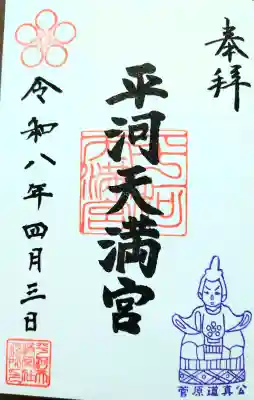 奉拝
平河天満宮
令和八年四月三日
菅原道真公